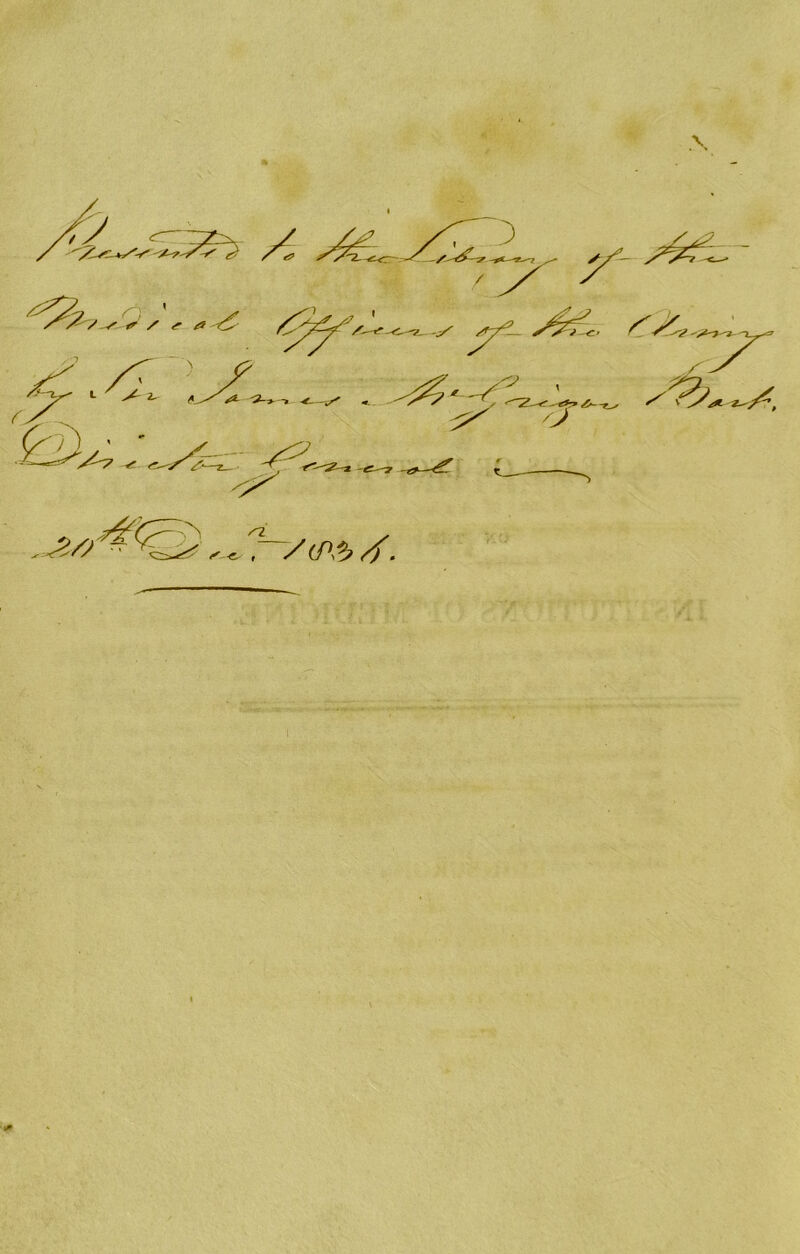 Presented to the Library of the
Medical Officers of the Army
by Sir James McGrigor Bart.
Director General
20th Decr. 1836.
INSTITUTIONS OF MEDICINE.